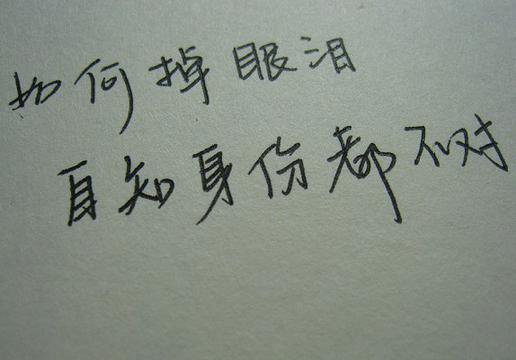 如何掉眼泪
自知身份都不对